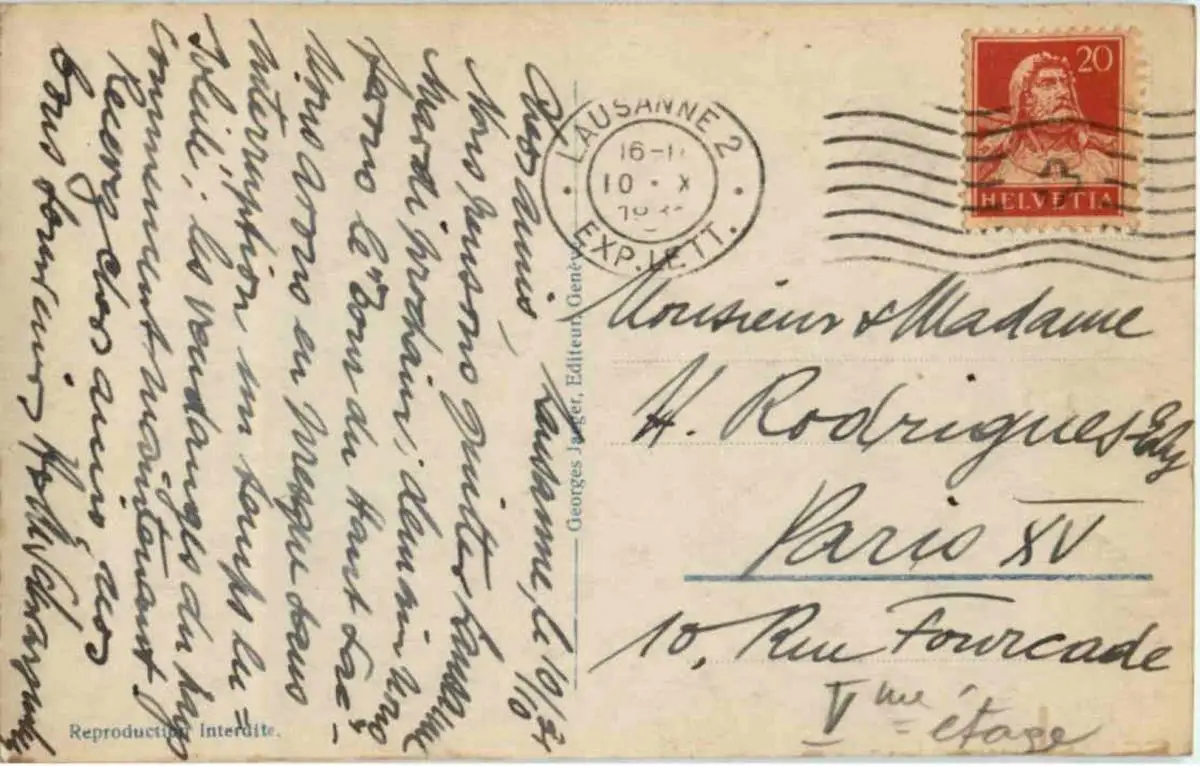 Chers amis, Lausanne, le 10/10
Nous pensons quitter Lausanne
Mardi prochain; demain nous
ferons le "Tour du Haut Lac"
Nous avons eu presque sans
interruption un temps en=
soleillé; les vendanges du pays
commencent maintenant
Recevez chers amis, nos
bons souvenirs
LAUSANNE 2
16-1
10 · X
EXP. LETT.
20
HELVETIA
Monsieur & Madame
H. Rodrigues-Ely
Paris XV
10, Rue Fourcade
Vme étage
Georges Jaeger, Editeur, Genève
Reproduction Interdite.